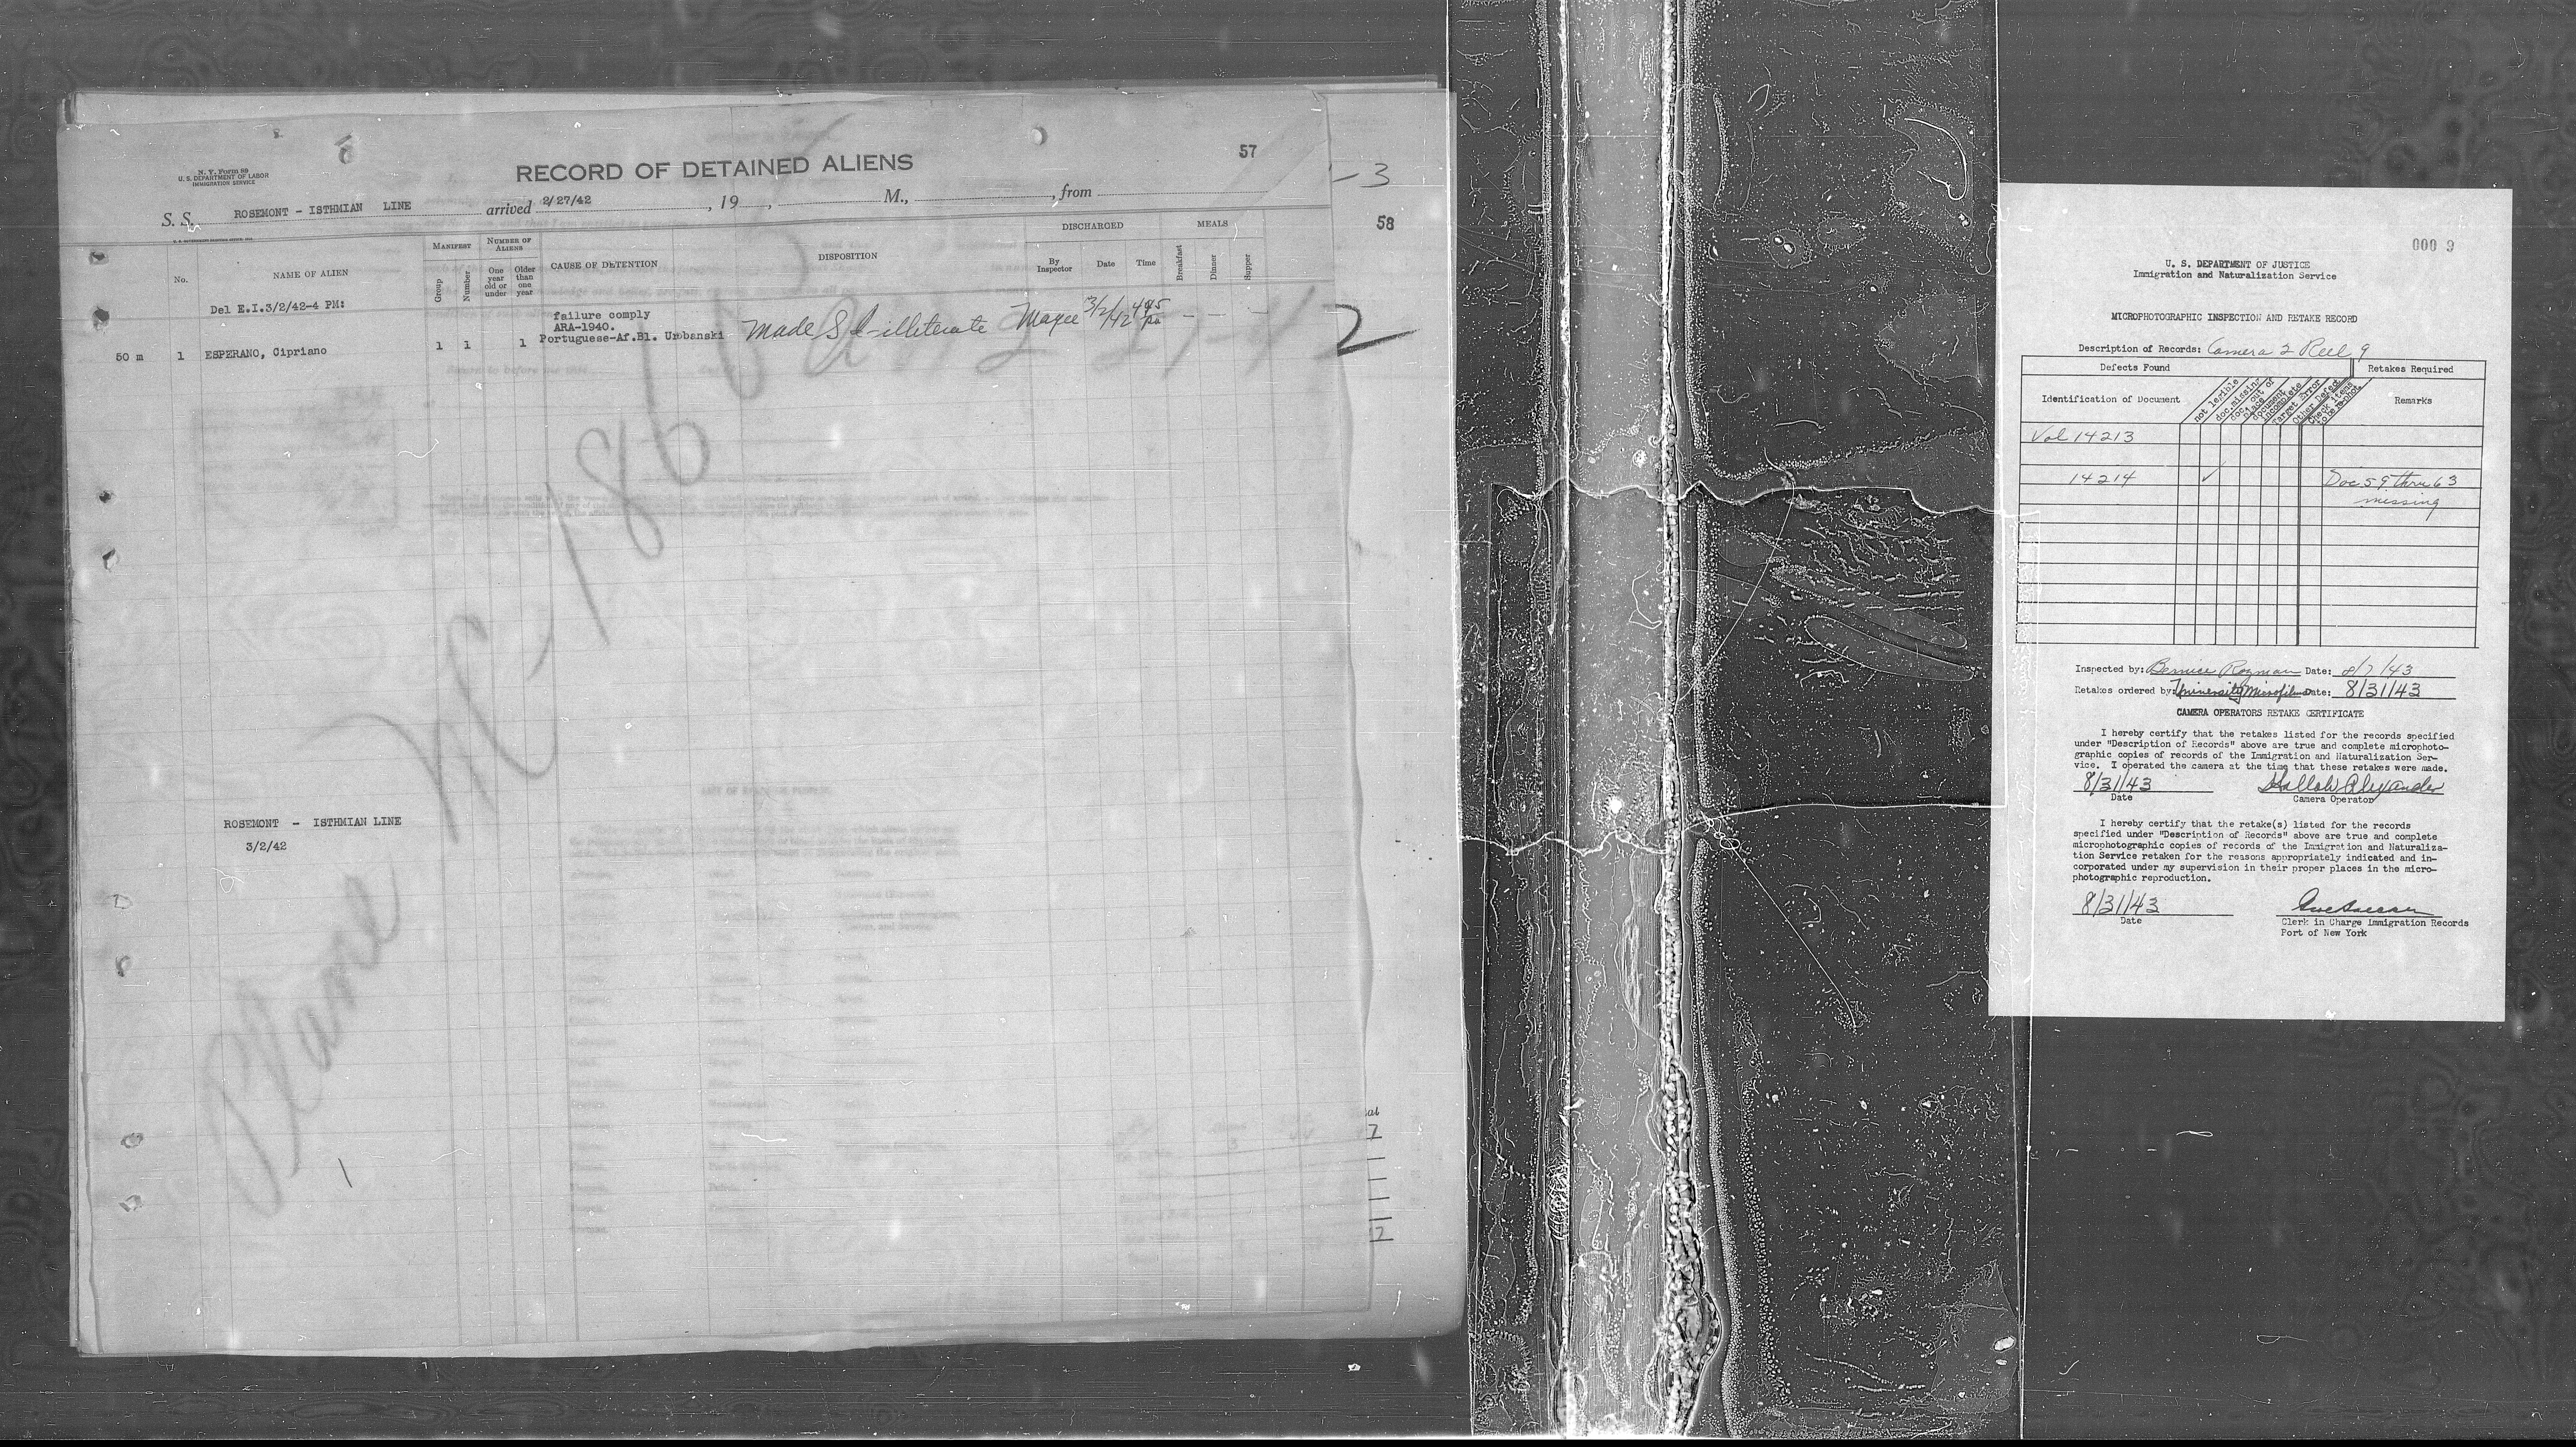 N. Y. Form 89
U. S. DEPARTMENT OF LABOR
IMMIGRATION SERVICE
RECORD OF DETAINED ALIENS
57
-3
S. S. ROSEMONT - ISTHMIAN LINE arrived 2/27/42, 19, M., from
58
No.
NAME OF ALIEN
MANIFEST
Group
Number
NUMBER OF ALIENS
One year old or under
Older than one year
CAUSE OF DETENTION
DISPOSITION
DISCHARGED
By Inspector
Date
Time
MEALS
Breakfast
Dinner
Supper
Del E.I.3/2/42-4 PM:
failure comply
ARA-1940.
Portuguese-Af.Bl. Urbanski
50 m 1 ESPERANO, Cipriano 1 1 1
Made S I-illiterate Magee 3/2/42 4:45 pm - - -
2
ROSEMONT - ISTHMIAN LINE
3/2/42
000 9
U. S. DEPARTMENT OF JUSTICE
Immigration and Naturalization Service
MICROPHOTOGRAPHIC INSPECTION AND RETAKE RECORD
Description of Records: Camera 2 Reel 9
Defects Found
Retakes Required
Identification of Document
not legible
doc. missing
doc. out of place
Document incomplete
Target Error
Other Defect
Check items to be rephot.
Remarks
Vol 14213
14214 ✓ Doc 59 thru 63
missing
Inspected by: Bernice Rozman Date: 8/7/43
Retakes ordered by: University Microfilms Date: 8/31/43
CAMERA OPERATORS RETAKE CERTIFICATE
I hereby certify that the retakes listed for the records specified
under "Description of Records" above are true and complete microphoto-
graphic copies of records of the Immigration and Naturalization Ser-
vice. I operated the camera at the time that these retakes were made.
8/31/43 Alexander
Date Camera Operator
I hereby certify that the retake(s) listed for the records
specified under "Description of Records" above are true and complete
microphotographic copies of records of the Immigration and Naturaliza-
tion Service retaken for the reasons appropriately indicated and in-
corporated under my supervision in their proper places in the micro-
photographic reproduction.
8/31/43
Date
Clerk in Charge Immigration Records
Port of New York